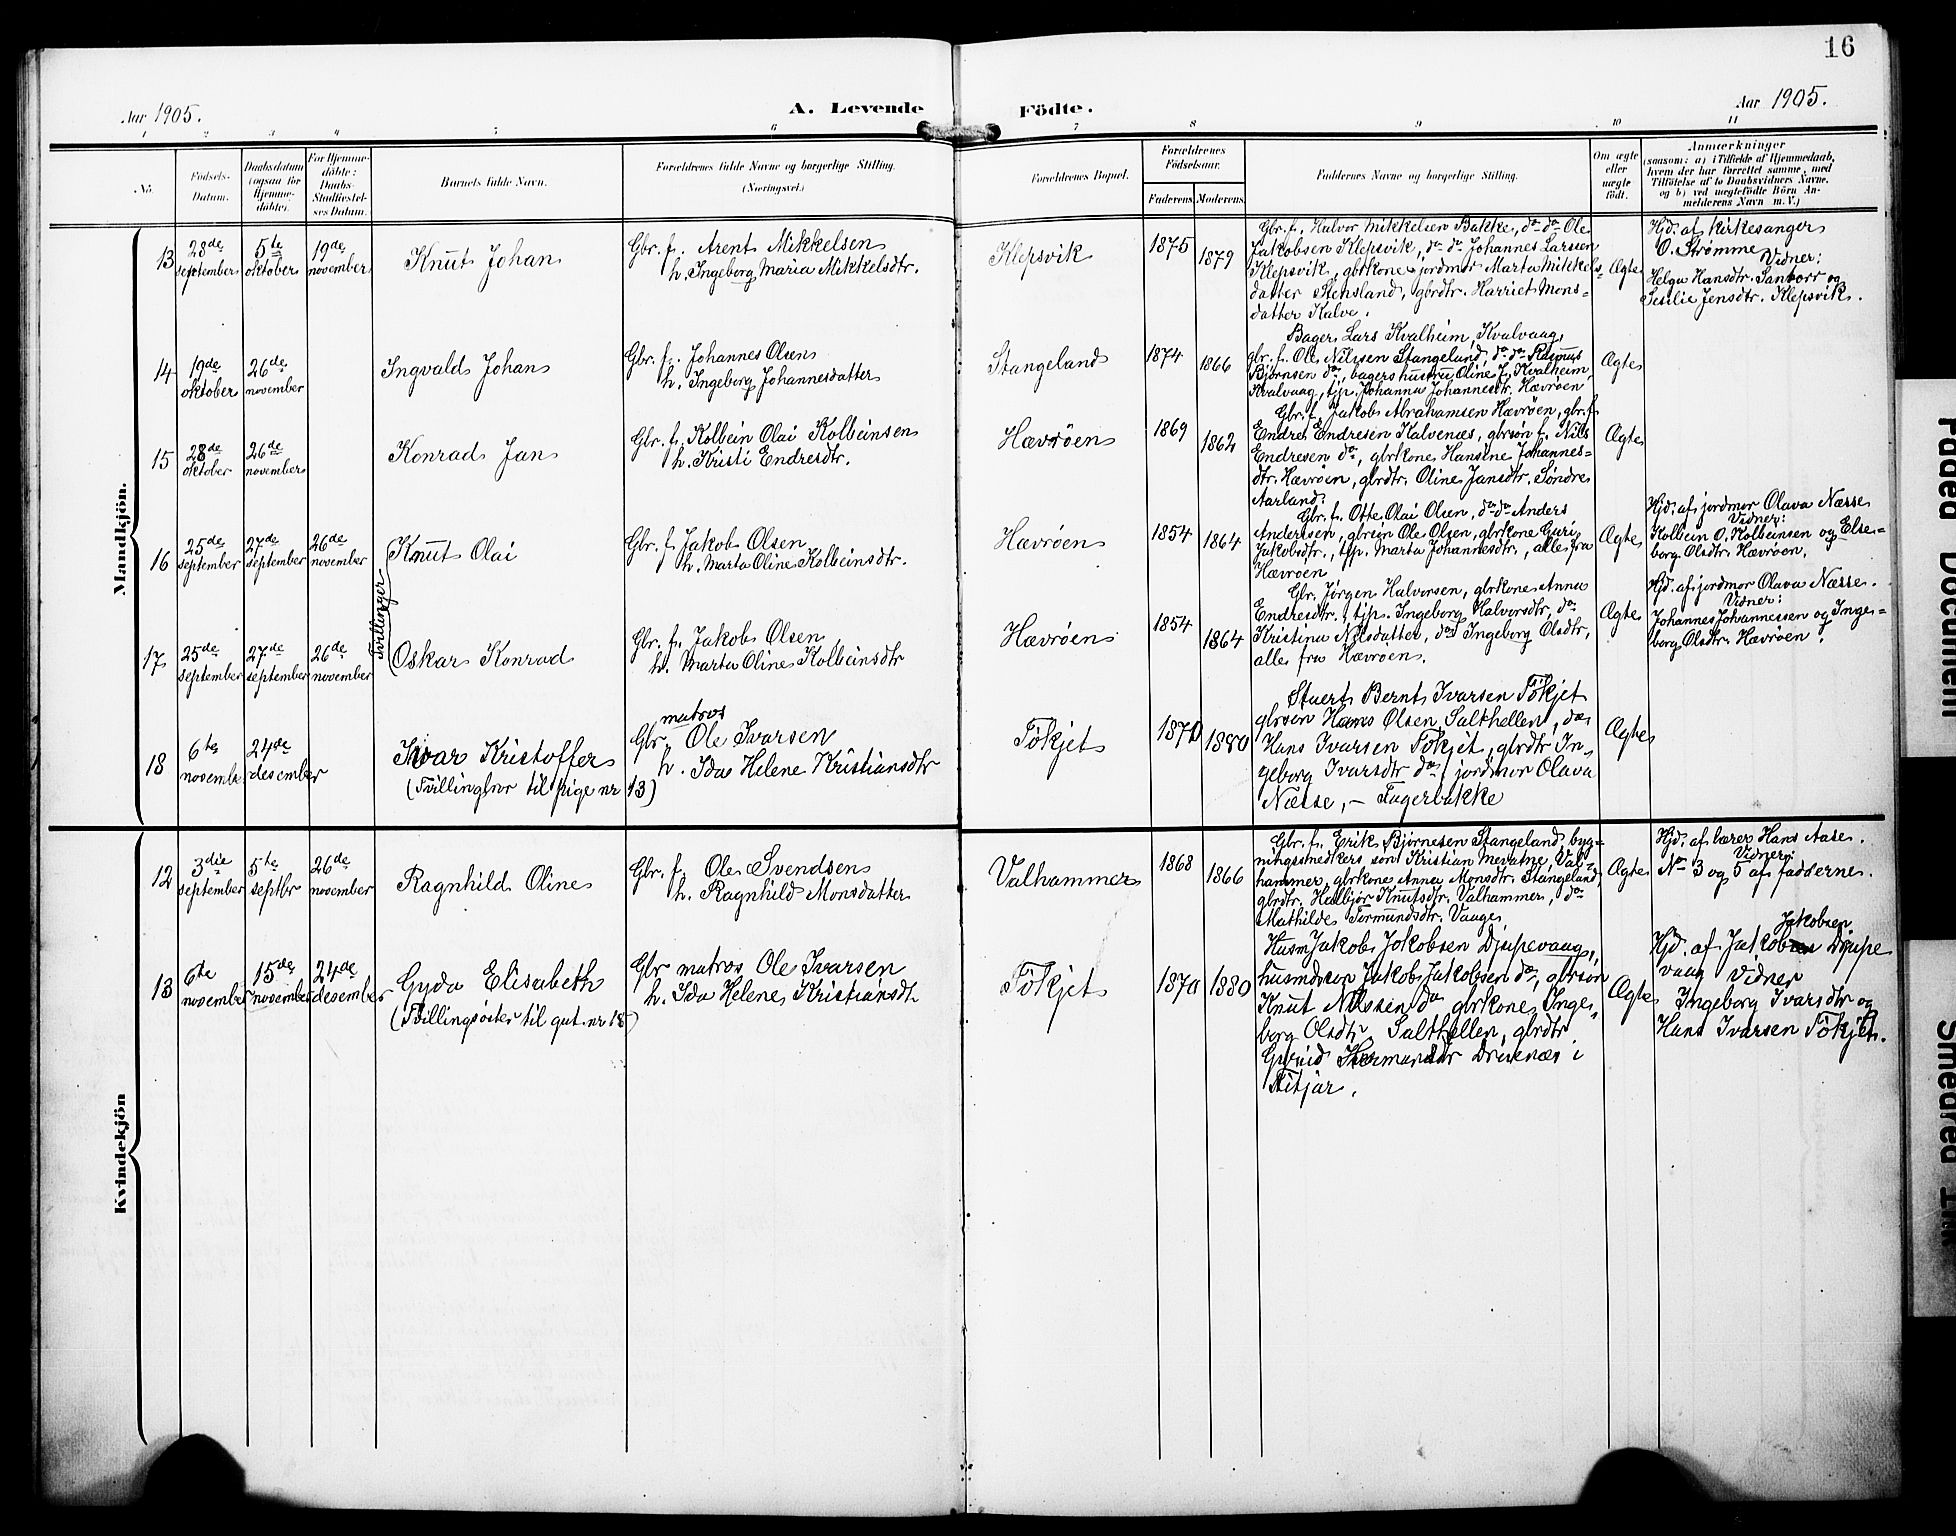 16
Aar 1905.
A. Levende Födte.
Aar 1905.
1 2 3 4 5 6 7 8 9 10 11
No.
Födsels-
Datum.
Daabsdatum
(ogsaa for
Hjemme-
döbte).
For Hjemme-
döbte:
Daabs-
Stadfæstel-
ses Datum.
Barnets fulde Navn.
Forældrenes fulde Navne og borgerlige Stilling.
(Næringsvei.)
Forældrenes Bopæl.
Forældrenes
Födselsaar.
Faderens. Moderens.
Faddernes Navne og borgerlige Stilling.
Om ægte
eller
uægte
født.
Anmærkninger
(saasom: a) i Tilfælde af Hjemmedaab,
hvem der har forrettet samme, med
Tilföielse af to Daabsvidners Navne,
og b) ved uægtefödte Börn An-
melderens Navn m. V.)
Mandkjön.
13
28de
september
5te
oktober
19de
november
Knut Johan
Gbr. f. Arent Mikkelsen
h. Ingeborg Maria Mikkelsdtr.
Klepsvik
1875
1879
Gbr. f. Halvor Mikkelsen Bakke, do do Ole
Jakobsen Klepsvik, do do Johannes Larsen
Klepsvik, gbrkone jordmor Marta Mikkels-
datter Stensland, gbrdtr. Harriet Mons-
datter Kalve.
Ægte
Hjd. af kirkesanger
O. Strømme
Vidner:
Helga Hansdtr. Santorr og
Sesilie Jensdtr. Klepsvik.
14
19de
oktober
26de
november
Ingvald Johan
Gbr. f. Johannes Olsen
h. Ingeborg Johannesdatter
Stangeland
1874
1866
Bager Lars Kvalheim, Kvalvaag,
gbr. f. Ole Nilssen Stangeland, do do Rasmus
Bjørnsen do, bagers hustru Oline J. Kvalheim,
Kvalvaag, tjp. Johanna Johannesdtr. Hævrøen
Ægte
15
28de
oktober
26de
november
Konrad Jan
Gbr. f. Kolbein Olai Kolbeinsen
h. Kristi Endresdtr.
Hævrøen
1869
1862
Gbr. f. Jakob Abrahamsen Hævrøen, gbr. f.
Endre Endresen Halvenæs, gbrsøn f. Nils
Endresen do, gbrkone Hansine Johannes-
dtr. Hævrøen, gbrdtr. Oline Jansdtr. Søndre
Aarland.
Ægte
16
25de
september
27de
september
26de
november
Tvillinger
Knut Olai
Gbr. f. Jakob Olsen
h. Marta Oline Kolbeinsdtr.
Hævrøen
1854
1864
Gbr. f. Otte Olai Olsen, do do Anders
Anderssen, gbrsøn Ole Olsen, gbrkone Guri
Jakobsdtr., tjp. Marta Johannesdtr., alle fra
Hævrøen
Ægte
Hjd. af jordmor Olava Næsse
Vidner:
Kolbein O. Kolbeinsen og Else-
borg Olsdtr. Hævrøen.
17
25de
september
27de
september
26de
november
Oskar Konrad
Gbr. f. Jakob Olsen
h. Marta Oline Kolbeinsdtr
Hævrøen
1854
1864
Gbr. Jørgen Halvorsen, gbrkone Anna
Endresdtr., tjp. Ingeborg Halvorsdtr, do
Kristina Nilsdatter, do Ingeborg Olsdtr,
alle fra Hævrøen.
Ægte
Hjd. af jordmor Olava Næsse.
Vidner:
Johannes Johannessen og Inge-
borg Olsdtr. Hævrøen.
18
6te
novembr
24de
desember
Ivar Kristoffer
(Tvillingbror til pige nr 13)
matros
Gbr. Ole Ivarsen
h. Ida Helene Kristiansdtr
Tökjet
1870
1880
Stuert Bernt Ivarsen Tökjet
gbrsøn Hans Olsen Salthellen, do
Hans Ivarsen Tökjet, gbrdtr In-
geborg Ivarsdtr do, jordmor Olava
Næsse, – Fagerbakke
Ægte
Kvindekjön
12
3die
september
5te
septbr
26de
november
Ragnhild Oline
Gbr. f. Ole Svendsen
h. Ragnhild Monsdatter
Valhammer
1868
1866
Gbr. f. Erik Bjørnesen Stangeland, byg-
ningssnedkers søn Kristian Mevatne, Val-
hammer, gbrkone Anna Monsdtr. Stangeland,
gbrdtr. Halbjør Knutsdtr. Valhammer, do
Mathilde Tormundsdtr. Vaage
Ægte
Hjd. af lærer Hans Aase.
Vidner:
No 3 og 5 af fadderne.
13
6te
november
15de
november
24de
desember
Gyda Elisabeth
(Tvillingsøster til gut nr 18)
Gbr matros Ole Ivarsen
h. Ida Helene Kristiansdt
Tökjet
1870
1880
Husm Jakob Jakobsen Djupevaag,
husmdsøn Jakob Jakobsen do, gbrsøn
Knut Nilssen do gbrkone Inge-
borg Olsdtr Salthellen, gbrdtr
Drivenæs i
Fitjar.
Ægte
Jakobsen
Hjd. af Jakob Djupe
vaag Vidner
Ingeborg Ivarsdtr og
Hans Ivarsen Tökjet.
Faded Document
Smeared Ink